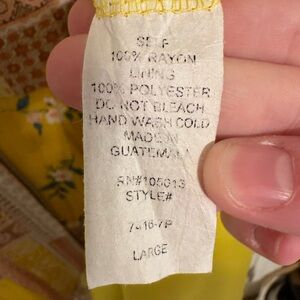 SELF
100% RAYON
LINING
100% POLYESTER
DO NOT BLEACH
HAND WASH COLD
MADE IN
GUATEMALA
RN#105013
STYLE#
7416-7P
LARGE